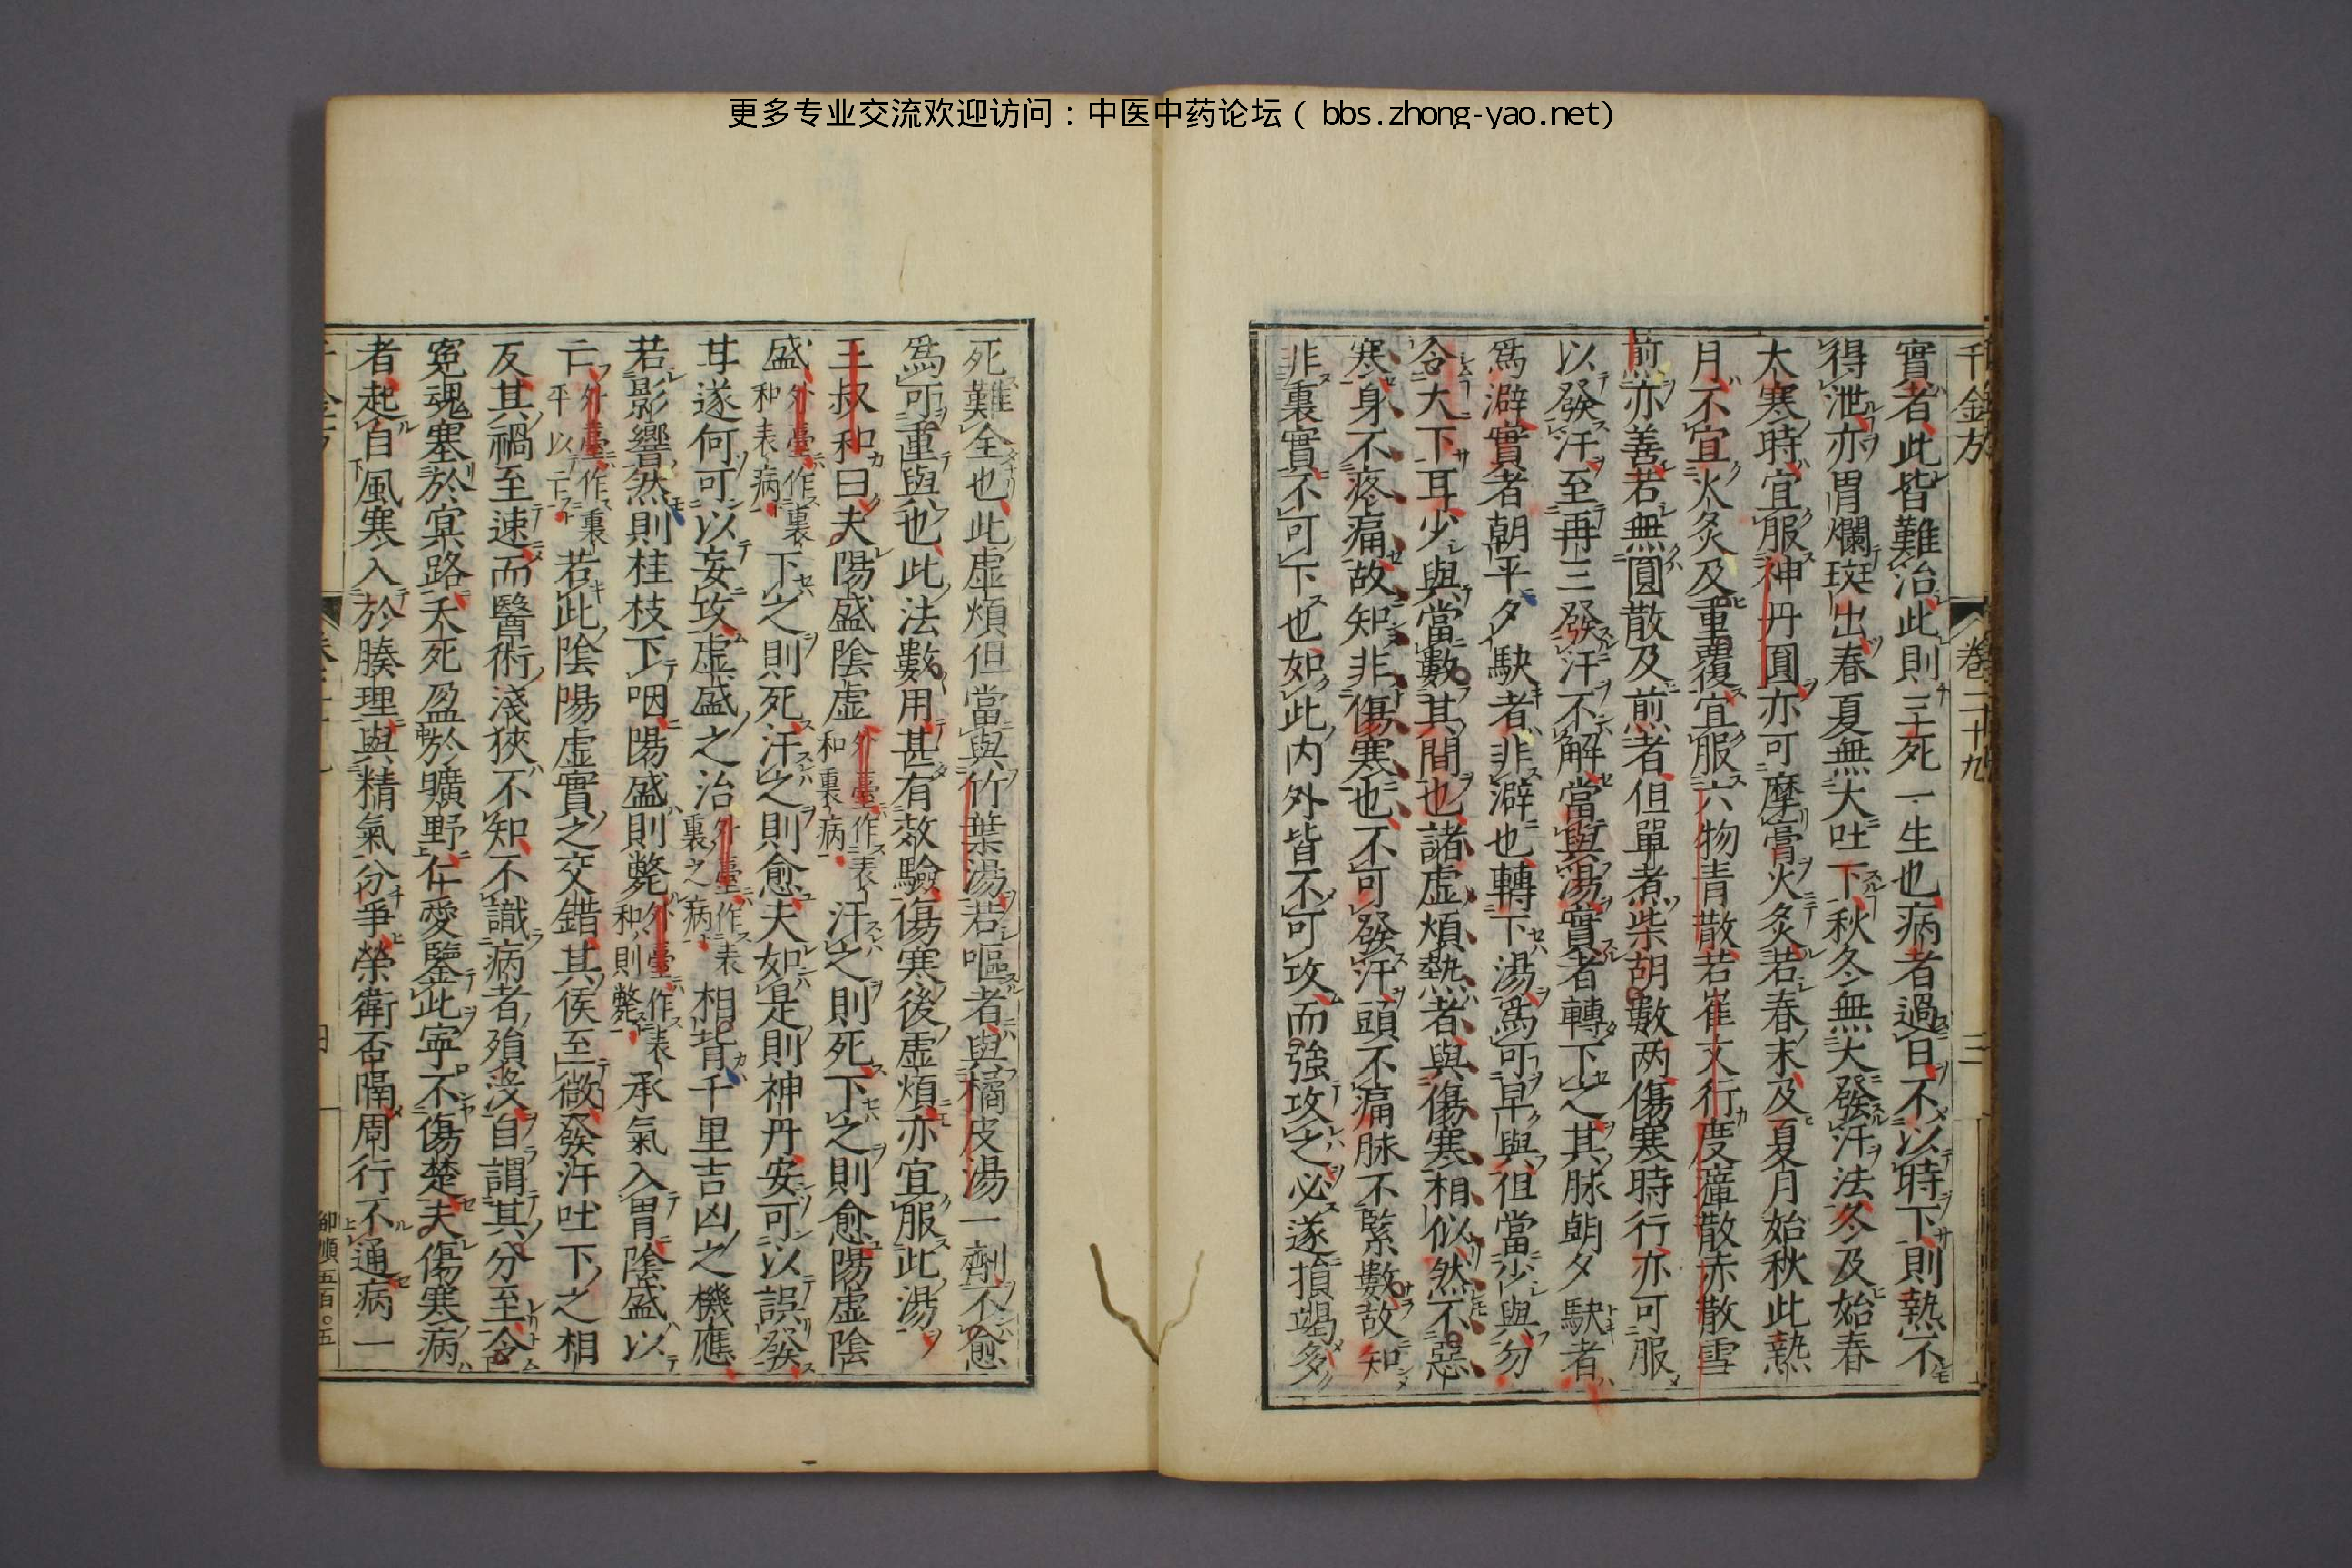 更多专业交流欢迎访问：中医中药论坛（ bbs.zhong-yao.net）
千金方 卷二十九 三
實者此皆難治此則三死一生也病者過日不以時下則熱不
得泄亦胃爛斑出春夏無大吐下秋冬無大發汗法冬及始春
太寒時宜服神丹圓亦可摩膏火灸若春末及夏月始秋此熱
月不宜火灸及重覆宜服六物青散若崔文行度瘴散赤散雪
煎亦善若無圓散及煎者但單煮柴胡數两傷寒時行亦可服
以發汗至再三發汗不解當與湯實者轉下之其脉朝夕駃者
爲澼實者朝平夕駃者非澼也轉下湯爲可早與但當少與勿
令大下耳少與當數其間也諸虚煩熱者與傷寒相似然不惡
寒身不疼痛故知非傷寒也不可發汗頭不痛脉不緊數故知
非裏實不可下也如此内外皆不可攻而強攻之必遂損竭多
死難全也此虚煩但當與竹葉湯若嘔者與橘皮湯一劑不愈
爲可重與也此法數用甚有效驗傷寒後虚煩亦宜服此湯
王叔和曰夫陽盛陰虚外臺作表和裏病汗之則死下之則愈陽虚陰
盛外臺作裏和表病下之則死汗之則愈夫如是則神丹安可以誤發
甘遂何可以妄攻虚盛之治外臺作表裏之病相背千里吉凶之機應
若影響然則桂枝下咽陽盛則斃外臺作表和則斃承氣入胃陰盛以
亡外臺作裏平以亡若此陰陽虚實之交錯其候至微發汗吐下之相
反其禍至速而醫術淺狹不知不識病者殞沒自謂其分至令
寃魂塞於冥路夭死盈於曠野仁愛鑒此寧不傷楚夫傷寒病
者起自風寒入於腠理與精氣分爭榮衛否隔周行不通病一